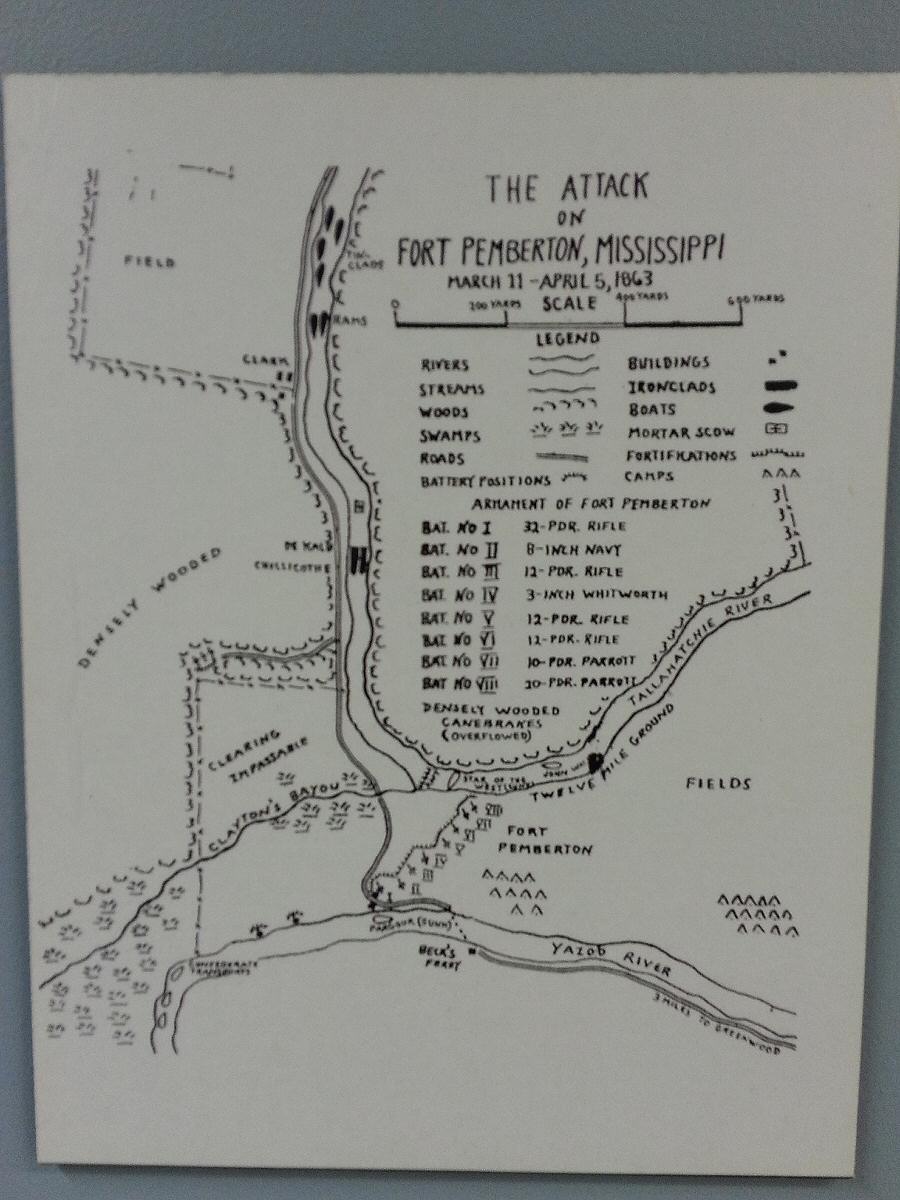 THE ATTACK
ON
FORT PEMBERTON, MISSISSIPPI
MARCH 11 - APRIL 5, 1863
SCALE
0 200 YARDS 400 YARDS 600 YARDS
LEGEND
RIVERS
STREAMS
WOODS
SWAMPS
ROADS
BATTERY POSITIONS
BUILDINGS
IRONCLADS
BOATS
MORTAR SCOW
FORTIFICATIONS
CAMPS
ARMAMENT OF FORT PEMBERTON
BAT. NO I 32-PDR. RIFLE
BAT. NO II 8-INCH NAVY
BAT. NO III 12-PDR. RIFLE
BAT. NO IV 3-INCH WHITWORTH
BAT. NO V 12-PDR. RIFLE
BAT. NO VI 12-PDR. RIFLE
BAT. NO VII 10-PDR. PARROTT
BAT NO VIII 20-PDR. PARROTT
DENSELY WOODED
CANEBRAKES
(OVERFLOWED)
FIELD
TIN-
CLADS
RAMS
CLARK
DE KALB
CHILLICOTHE
DENSELY WOODED
CLEARING
IMPASSABLE
CLAYTON'S BAYOU
STAR OF THE
TALLAHATCHIE RIVER
TWELVE MILE GROUND
FIELDS
FORT
PEMBERTON
VIII
VII
VI
V
IV
III
II
I
(SUNK)
CONFEDERATE
TRANSPORTS
BECK'S
FERRY
YAZOO RIVER
3 MILES TO GREENWOOD